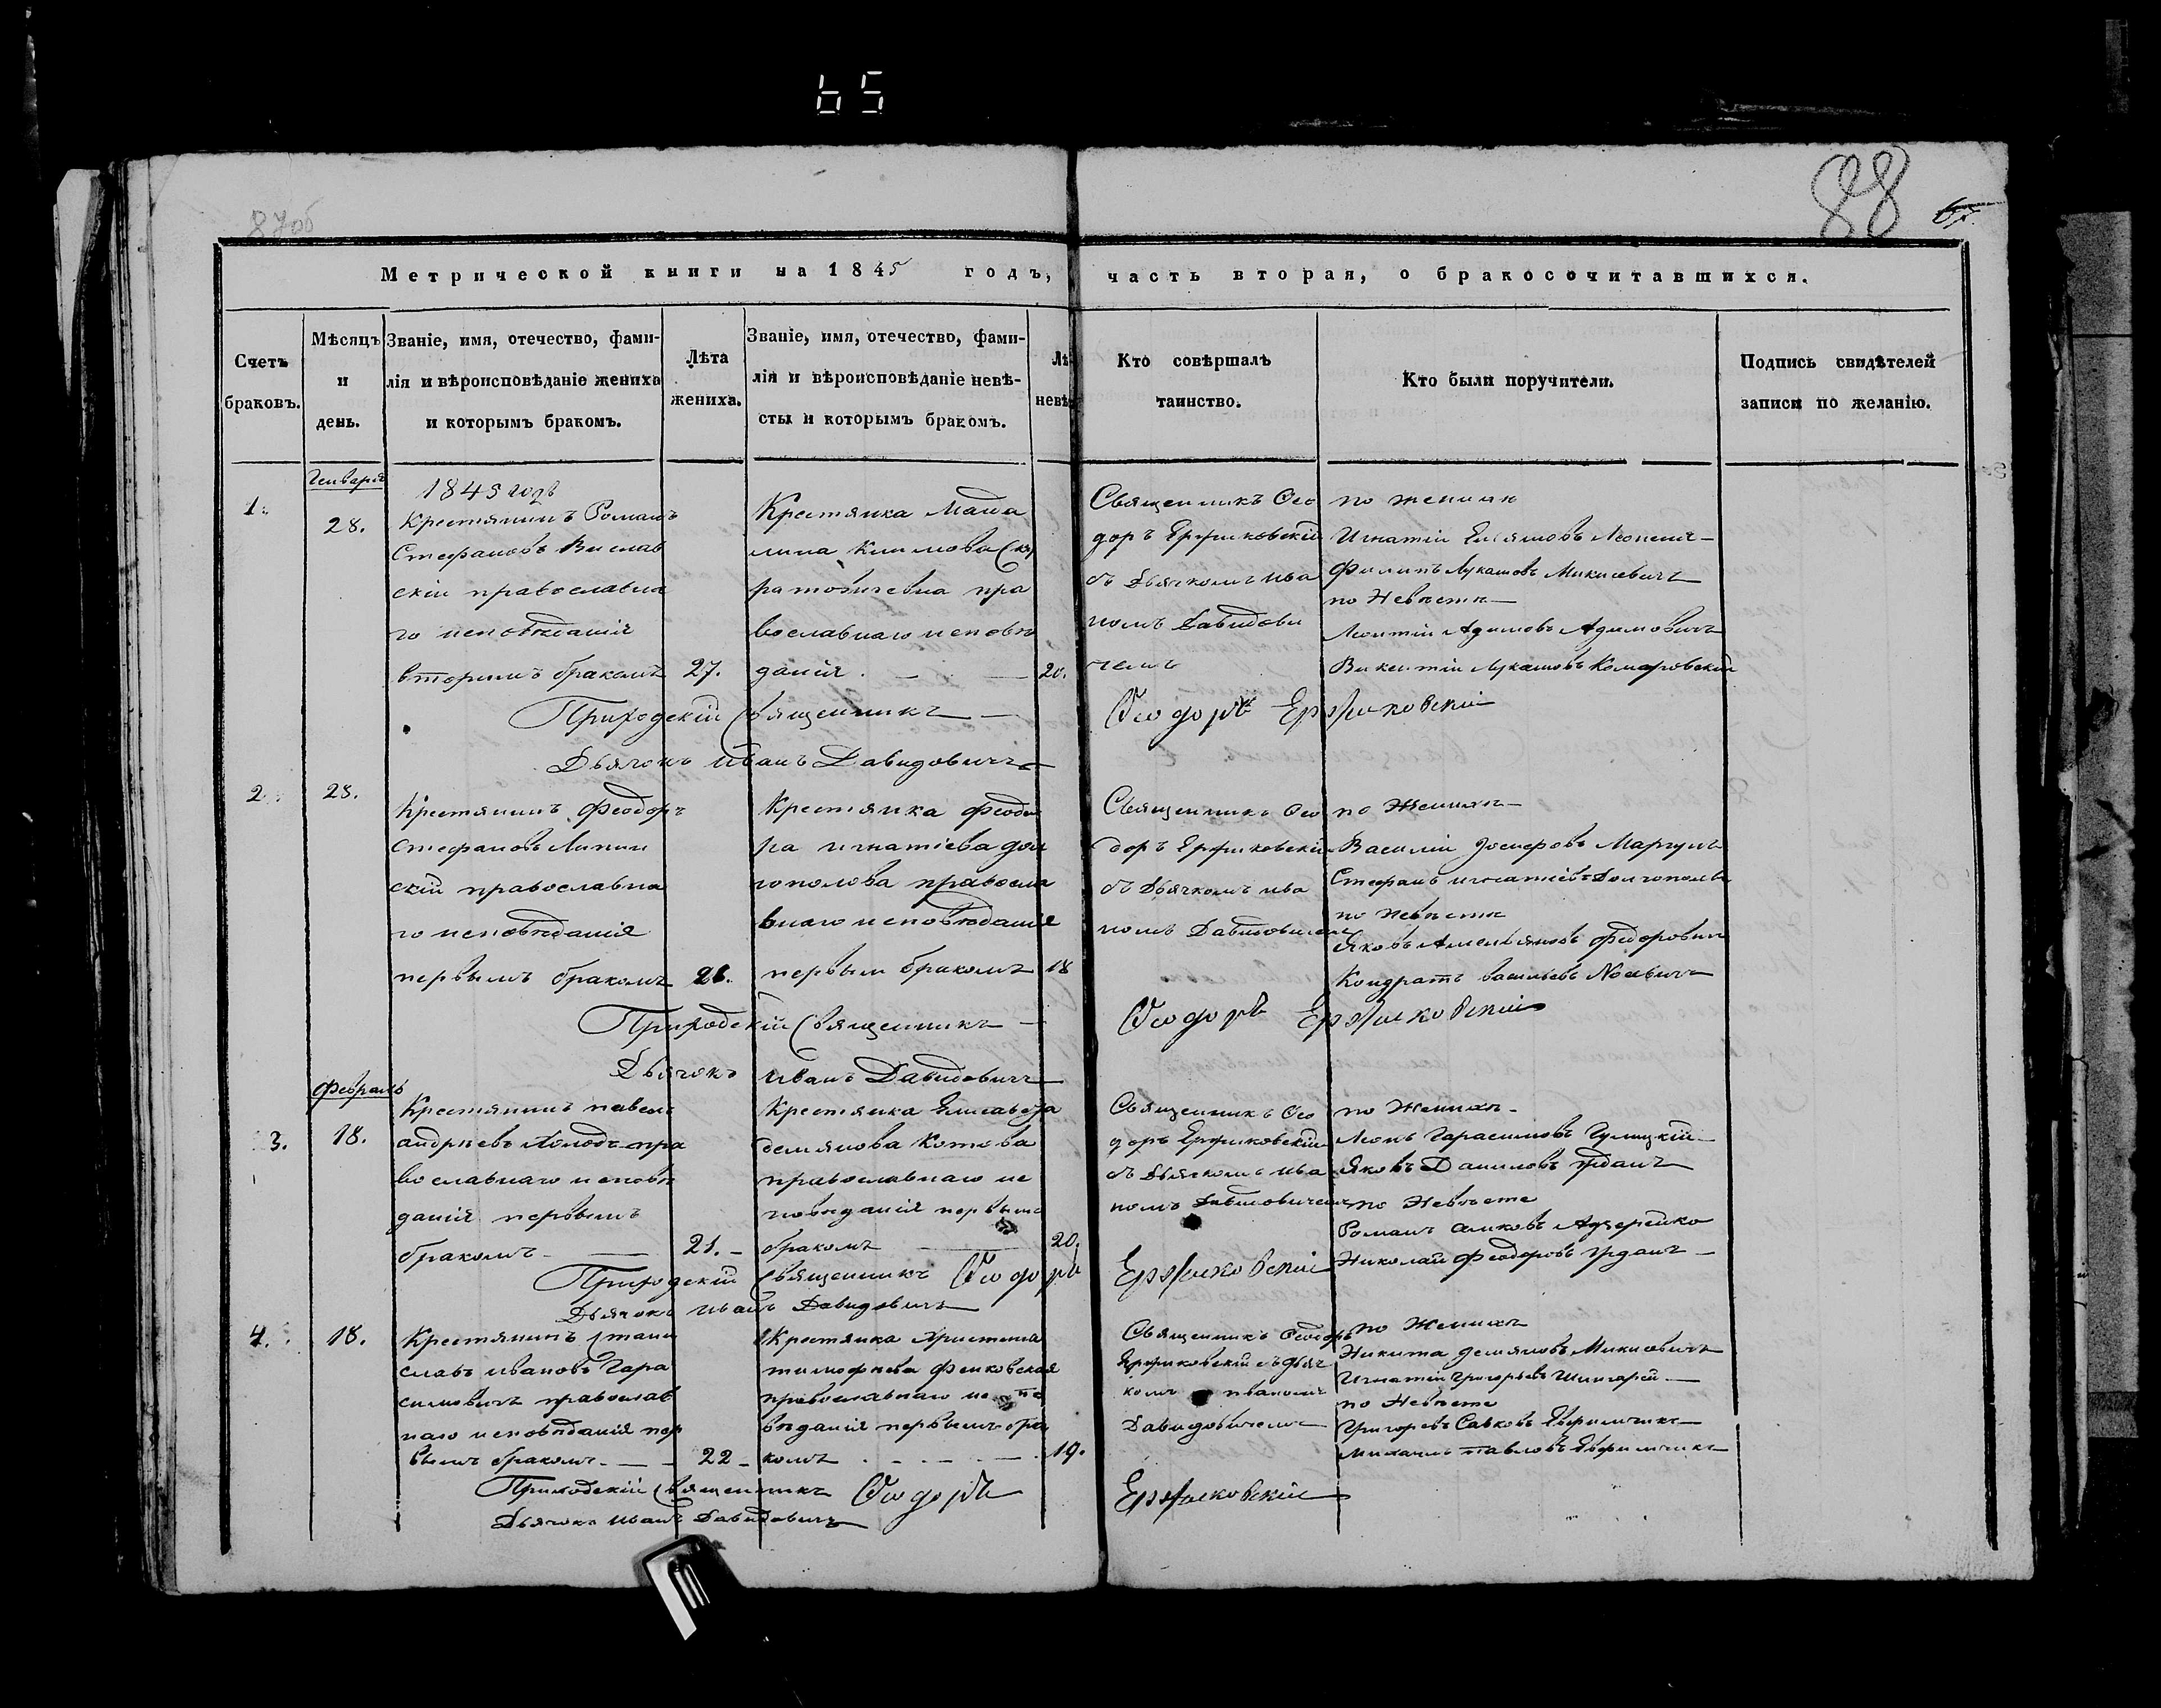 65
88
87об
Метрической книги на 1845 годъ, часть вторая, о бракосочитавшихся.
Счетъ браковъ.
Мѣсяцъ и день.
Званіе, имя, отечество, фами-
лія и вѣроисповѣданіе жениха
и которымъ бракомъ.
Лѣта жениха.
Званіе, имя, отечество, фами-
лія и вѣроисповѣданіе невѣ-
сты и которымъ бракомъ.
Лѣ
невѣ
Кто совѣршалъ
таинство.
Кто были поручители.
Подпись свидѣтелей
записи по желанію.
Генваря
1.
28.
1845 годъ
Крестянинъ Романъ
Стефановъ
скій православна
го исповѣданія
вторимъ бракомъ 27.
Крестянка Магда
лина Климова
православнаго исповѣ
данія 20.
Священникъ Ѳео
доръ
съ Дьячкомъ Ива
номъ Давидови
чемъ
по женихѣ
Игнатій
Филипъ Лукашовъ Микисевичъ
по Невѣстѣ
Леонтій Адамовъ Адамовичъ
Викентій Лукашовъ Комаровскій
Приходскій Священникъ Ѳеодоръ
Дьячокъ Иванъ Давидовичъ
2.
28.
Крестянинъ Феодоръ
Стефановъ Липин
скій православна
го исповѣданія
первымъ бракомъ 21.
Крестянка Феодо
ра Игнатіева Дол
гополова правосла
внаго исповѣданія
первым бракомъ 18
Священникъ Ѳео
доръ
съ Дьячкомъ Ива
номъ Давидовичемъ
по Женихѣ
Василій
Стефанъ Игнатіевъ Долгополовъ
по Невѣстѣ
Яковъ Амельяновъ Федоровичъ
Кондратъ Васильевъ
Приходскій Священникъ Ѳеодоръ
Дьячокъ Иванъ Давидовичъ
Февраль
3.
18.
Крестянинъ павелъ
андрѣевъ Холодъ пра
вославнаго исповѣ
данія первымъ
бракомъ 21.
Крестянка Елисавета
демянова Котова
православнаго ис
повѣданія первымъ
бракомъ 20.
Священникъ Ѳео
доръ
съ Дьячкомъ Ива
номъ Давидовичемъ
по Женихѣ
Леонъ Гарасимовъ
Яковъ Даниловъ
по Невѣсте
Романъ
Николай Феодоровъ
Приходскій Священникъ Ѳеодоръ
Дьячокъ Иванъ Давидовичъ
4.
18.
Крестянинъ Стани
славъ Ивановъ Гара
симовичъ православ
наго исповѣданія пер
вымъ бракомъ 22
Крестянка Христина
тимофѣева Фенковская
православнаго испо
вѣданія первымъ бра
комъ 19.
Священникъ Ѳеодоръ
съ Дьяч
комъ иваномъ
Давидовичемъ
по Женихѣ
Никита Демяновъ Микисевичъ
Игнатій Григорьевъ
по Невѣсте
Григорій Савковъ
Михаилъ Павловъ
Приходскій Священникъ Ѳеодоръ
Дьячокъ Иванъ Давидовичъ